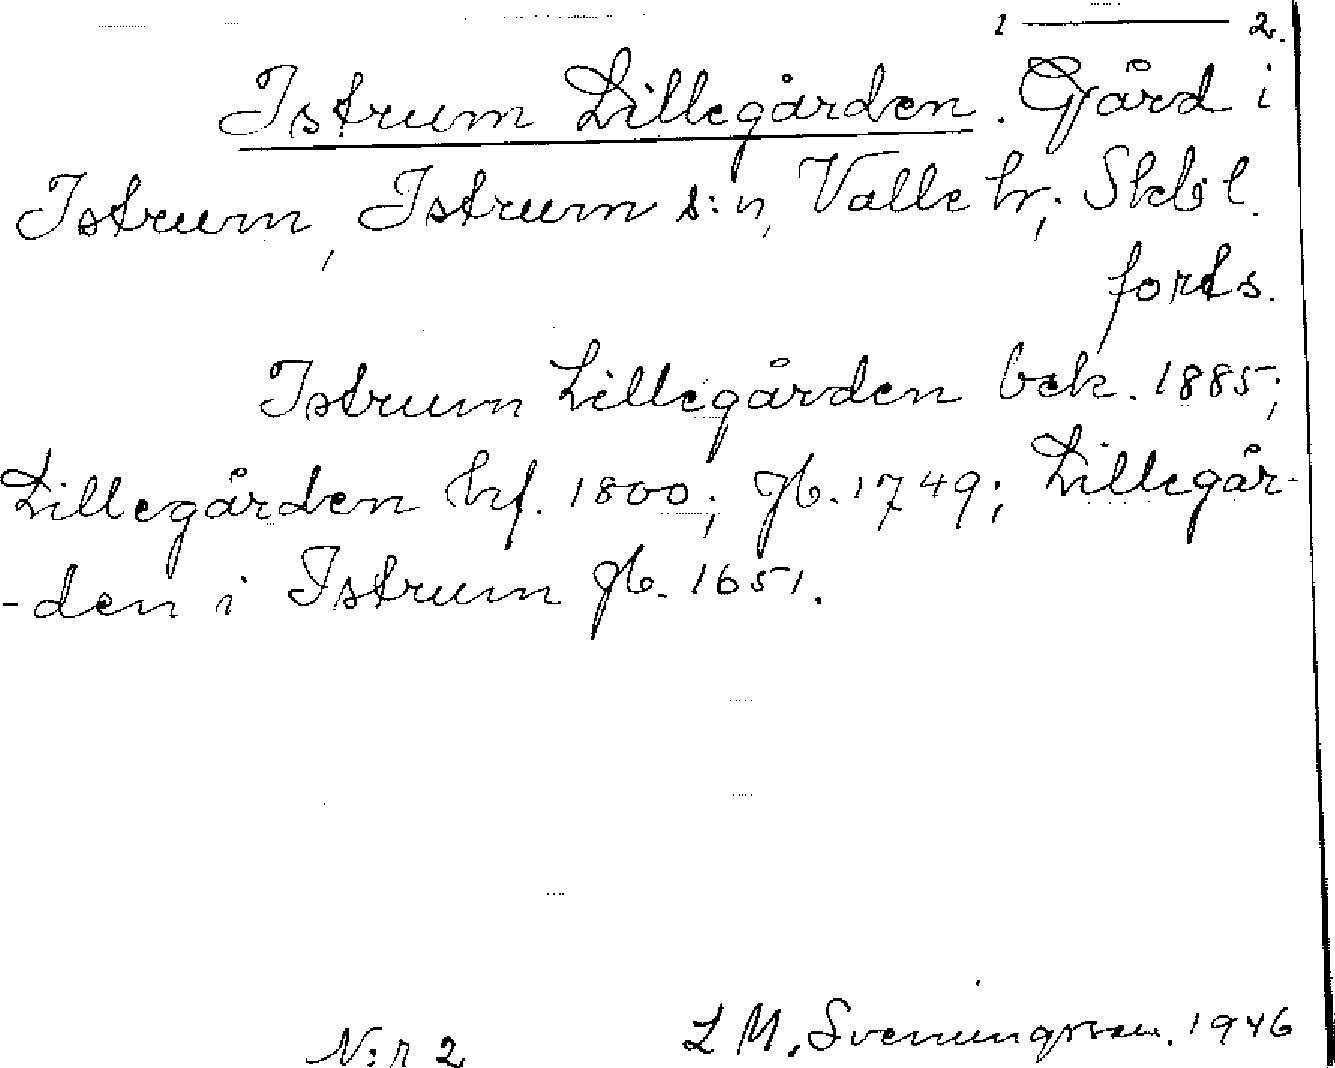 1 — 2.
Istrum Lillegården. Gård i
Istrum, Istrum s:n, Valle hr, Skbl.
forts.
Istrum Lillegården bek. 1885;
Lillegården hf. 1800; jb. 1749; Lillegår-
-den i Istrum jb. 1651.
N:r 2 L M. Sveningsson. 1946